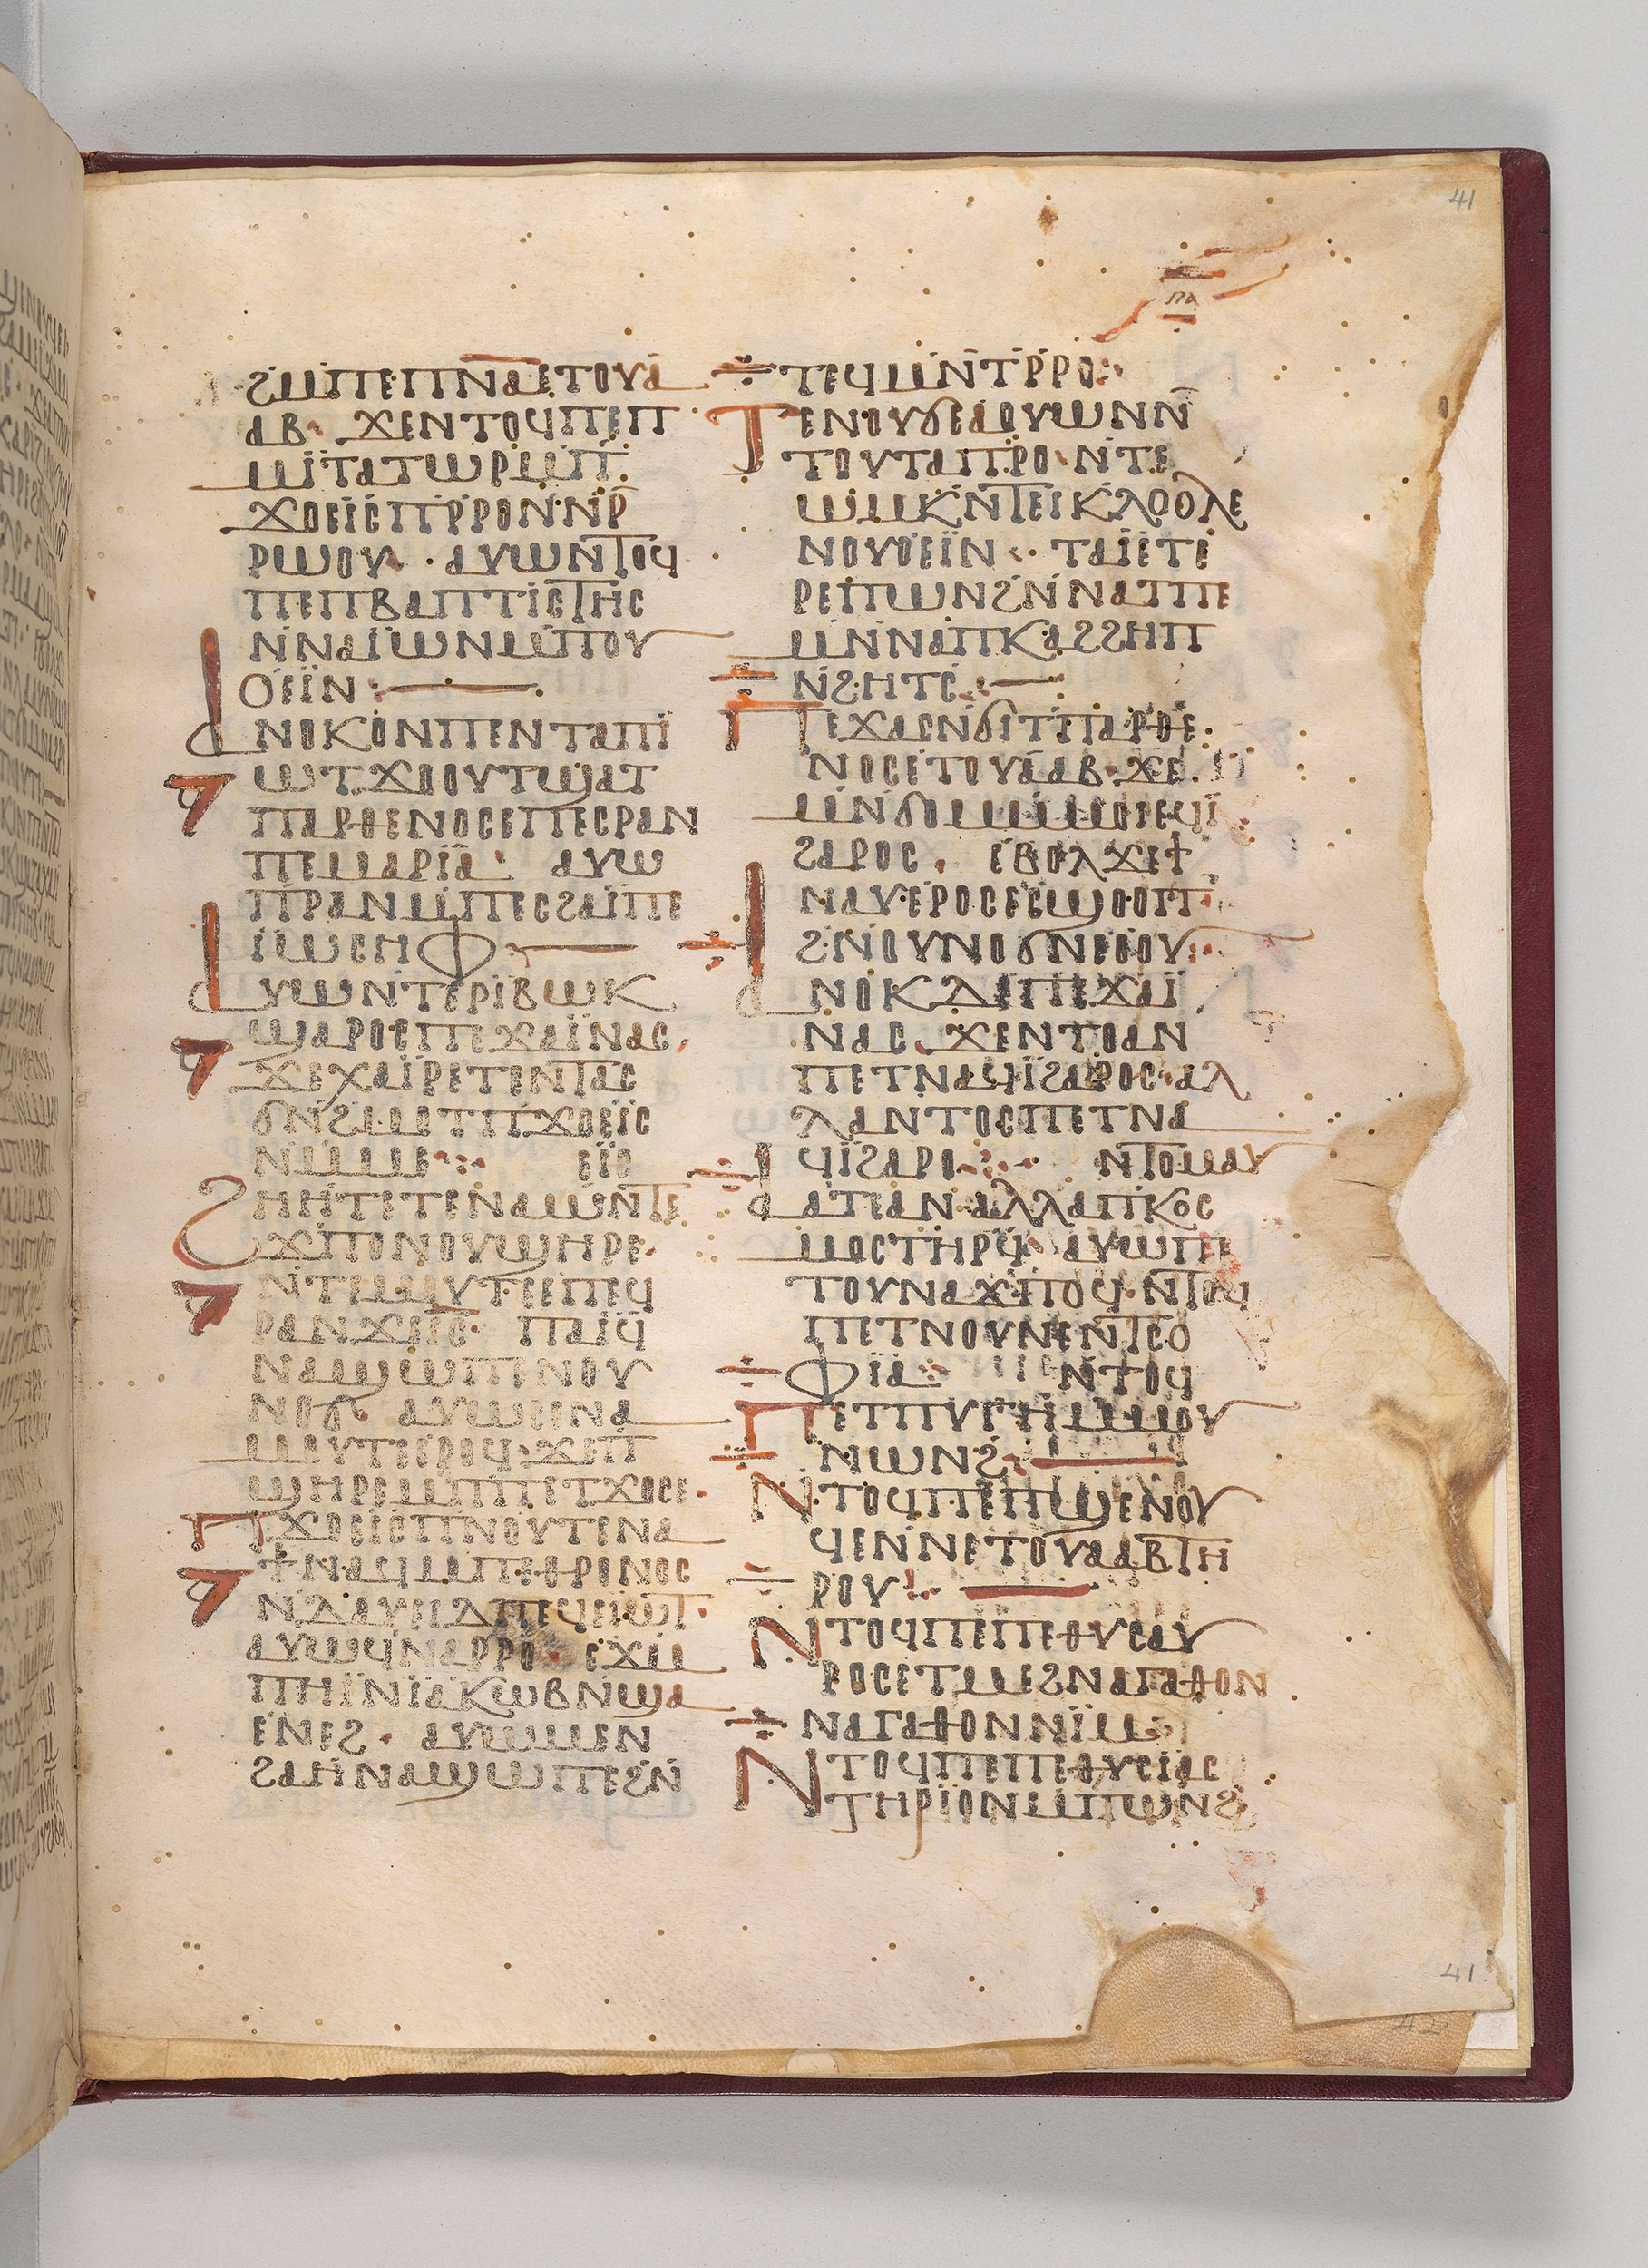 41
ⲡⲁ
ϩⲙⲡⲉⲡⲛⲁⲉⲧⲟⲩⲁ
ⲁⲃ· ϫⲉⲛⲧⲟϥⲡⲉⲡ
ⲙⲓⲧⲁⲧⲱⲣⲙⲡ
ϫⲟⲉⲓⲥⲡⲣⲣⲟⲛⲛⲣ
ⲣⲱⲟⲩ· ⲁⲩⲱⲛⲧⲟϥ
ⲡⲉⲡⲃⲁⲡⲧⲓⲥⲧⲏⲥ
ⲛⲛⲁⲓⲱⲛⲙⲡⲟⲩ
ⲟⲉⲓⲛ
ⲁⲛⲟⲕⲟⲛⲡⲉⲛⲧⲁⲡⲓ
ⲱⲧϫⲟⲟⲩⲧϣⲁⲧ
ⲡⲁⲣⲑⲉⲛⲟⲥⲉⲡⲉⲥⲣⲁⲛ
ⲡⲉⲙⲁⲣⲓⲁ· ⲁⲩⲱ
ⲡⲣⲁⲛⲙⲡⲉⲥϩⲁⲓⲡⲉ
ⲓⲱⲥⲏⲫ
ⲁⲩⲱⲛⲧⲉⲣⲓⲃⲱⲕ
ϣⲁⲣⲟⲥⲡⲉϫⲁⲓⲛⲁⲥ
ϫⲉⲭⲁⲓⲣⲉⲧⲉⲛⲧⲁⲥ
ϭⲛϩⲙⲟⲧⲡϫⲟⲉⲓⲥ
ⲛⲙⲙⲉ ⲉⲓⲥ
ϩⲏⲏⲧⲉⲧⲉⲛⲁⲱⲛⲧⲉ
ϫⲡⲟⲛⲟⲩϣⲏⲣⲉ
ⲛⲧⲉⲙⲟⲩⲧⲉⲉⲡⲉϥ
ⲣⲁⲛϫⲉⲓⲥ· ⲡⲁⲓϥ
ⲛⲁϣⲱⲡⲉⲛⲟⲩ
ⲛⲟϭ· ⲁⲩⲱⲥⲉⲛⲁ
ⲙⲟⲩⲧⲉⲉⲣⲟϥ·ϫⲉⲡ
ϣⲏⲣⲉⲙⲡⲡⲉⲧϫⲟⲥⲉ·
ⲡϫⲟⲉⲓⲥⲡⲛⲟⲩⲧⲉⲛⲁ
ϯⲛⲁϥⲙⲡⲉⲑⲣⲟⲛⲟⲥ
ⲛⲇⲁⲩⲉⲓⲇⲡⲉϥⲉⲓⲱⲧ·
ⲁⲩⲱϥⲛⲁⲣⲣⲟ· ⲉϫⲙ
ⲡⲏⲓⲛⲓⲁⲕⲱⲃⲛϣⲁ
ⲉⲛⲉϩ· ⲁⲩⲱⲙⲛ
ϩⲁⲏⲛⲁϣⲱⲡⲉϩⲛ
ⲧⲉϥⲙⲛⲧⲣⲣⲟ
ⲧⲉⲛⲟⲩϭⲉⲁⲟⲩⲱⲛⲛ
ⲧⲟⲩⲧⲁⲡⲣⲟ·ⲛⲧⲉ
ⲱⲙⲕⲛⲧⲉⲓⲕⲗⲟⲟⲗⲉ
ⲛⲟⲩⲟⲉⲓⲛ· ⲧⲁⲓⲉⲧⲉ
ⲣⲉⲡⲱⲛϩⲛⲛⲁⲧⲡⲉ
ⲙⲛⲛⲁⲡⲕⲁϩϩⲏⲡ
ⲛϩⲏⲧⲥ
ⲡⲉϫⲁⲥⲛϭⲓⲧⲡⲁⲣⲑⲉ
ⲛⲟⲥⲉⲧⲟⲩⲁⲁⲃ·ϫⲉ
ⲙⲛϭⲟⲙⲙⲙⲟⲓⲉϥⲓ
ϩⲁⲣⲟⲥ· ⲉⲃⲟⲗϫⲉϯ
ⲛⲁⲩⲉⲣⲟⲥⲉⲥϣⲟⲟⲡ
ϩⲛⲟⲩⲛⲟϭⲛⲉⲟⲟⲩ
ⲁⲛⲟⲕⲇⲉⲡⲉϫⲁⲓ
ⲛⲁⲥ· ϫⲉⲛⲧⲟⲁⲛ
ⲡⲉⲧⲛⲁϥⲓϩⲁⲣⲟⲥ·ⲁⲗ
ⲗⲁⲛⲧⲟⲥⲡⲉⲧⲛⲁ
ϥⲓϩⲁⲣⲟ ⲛⲧⲟⲙⲁⲩ
ⲁⲁⲧⲉⲁⲛ·ⲁⲗⲗⲁⲡⲕⲟⲥ
ⲙⲟⲥⲧⲏⲣϥ· ⲁⲩⲱⲡⲉ
ⲧⲟⲩⲛⲁϫⲡⲟϥ·ⲛⲧⲟϥ
ⲡⲉⲧⲛⲟⲩⲛⲉⲛⲧⲥⲟ
ⲫⲓⲁ ⲛⲧⲟϥ
ⲡⲉⲧⲡⲩⲅⲏⲙⲙⲟⲩ
ⲛⲱⲛϩ
ⲛⲧⲟϥⲡⲉⲡϣⲉⲛⲟⲩ
ϥⲉⲛⲛⲉⲧⲟⲩⲁⲁⲃⲧⲏ
ⲣⲟⲩ
ⲛⲧⲟϥⲡⲉⲡⲉⲑⲩⲥⲁⲩ
ⲣⲟⲥⲉⲧⲙⲉϩⲛⲁⲅⲁⲑⲟⲛ
ⲛⲁⲅⲁⲑⲟⲛⲛⲓⲙ
ⲛⲧⲟϥⲡⲉⲡⲉⲑⲩⲥⲓⲁⲥ
ⲧⲏⲣⲓⲟⲛⲙⲡⲱⲛϩ
41
42